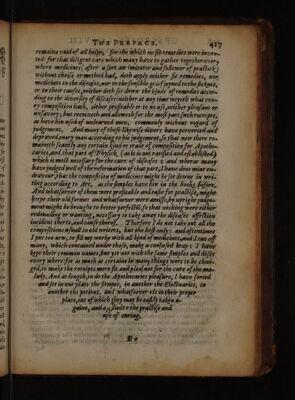 THE PREFACE. 417
remaine void of all helpe, for the which no fit remedies were inuen-
ted: for that diligent care which many haue to gather together euery
where medicines (after a sort an imitator and follower of practice)
without choise or method had, doth apply neither fit remedies, nor
medicines to the diseases, nor to the sensible grief ioyned to the sicknes,
or to their causes, neither doth set downe the kinds of remedies accor-
ding to the diuersity of diseases: neither at any time weyeth what eue-
ry composition hath, either profitable or to no vse, neither pleasant or
vnsauory; but receiueth and alloweth for the most part such receipts,
as haue bin vsed of vnlearned men, commonly without regard of
iudgement. And many of these likewise diuers haue peruerted and
depraued, euery man according to his iudgement, so that now there re-
maineth scantly any certain kind or trade of composition for Apothe-
caries, and that part of Physick, (as it is not raised and established)
which is most necessary for the cure of diseases: and wheras many
haue iudged well of the reformation of that part, I haue also mine en-
deauour, that the composition of medicines might be set downe in wri-
ting according to Art, as the simples haue him in the books before,
and whatsoeuer of them were profitable and easie for practise, might
keepe their old forme: and whatsoeuer were amisse, by vpright iudge-
ment might be brought to better perfection, so that nothing were either
redounding or wanting, necessary to take away the diseases affection
incident therto, and comfort therof. Therfore I do not take out all the
compositions vsuall in old writers, but the best only: and oftentimes
I put too new, to fill my worke with all kind of medicines, and I cut off
many, which contained vnder those, make a confused heap: I haue
kept their common names, but yet not with the same simples and doses
euery where for as much as certaine in many things were to be chan-
ged, to make the receipts more fit and pleasant for the cure of the ma-
lady. And at length, to the Apothecaries pleasure, I haue sorted
and set in one place the sirups, in another the Electuaries, in
another the potions, and whatsoeuer els in their proper
place, out of which they may be easily taken a-
gaine, and applied to the practise and
vse of curing.
E e